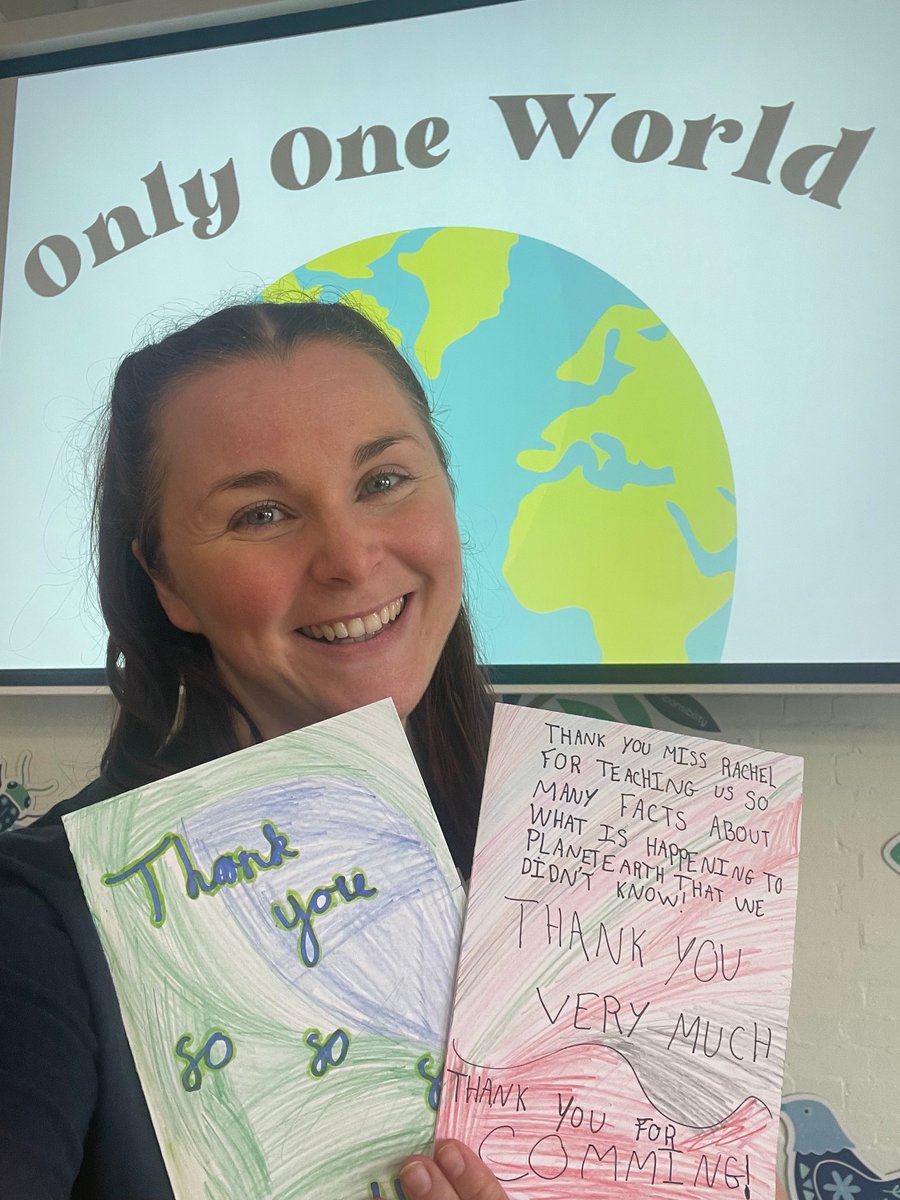 Only One World
onsibility
Thank
you
so so s
THANK YOU MISS RACHEL
FOR TEACHING US SO
MANY FACTS ABOUT
WHAT IS HAPPENING TO
PLANETEARTH THAT WE
DIDN'T KNOW!
THANK YOU
VERY MUCH
THANK YOU FOR
COMMING!